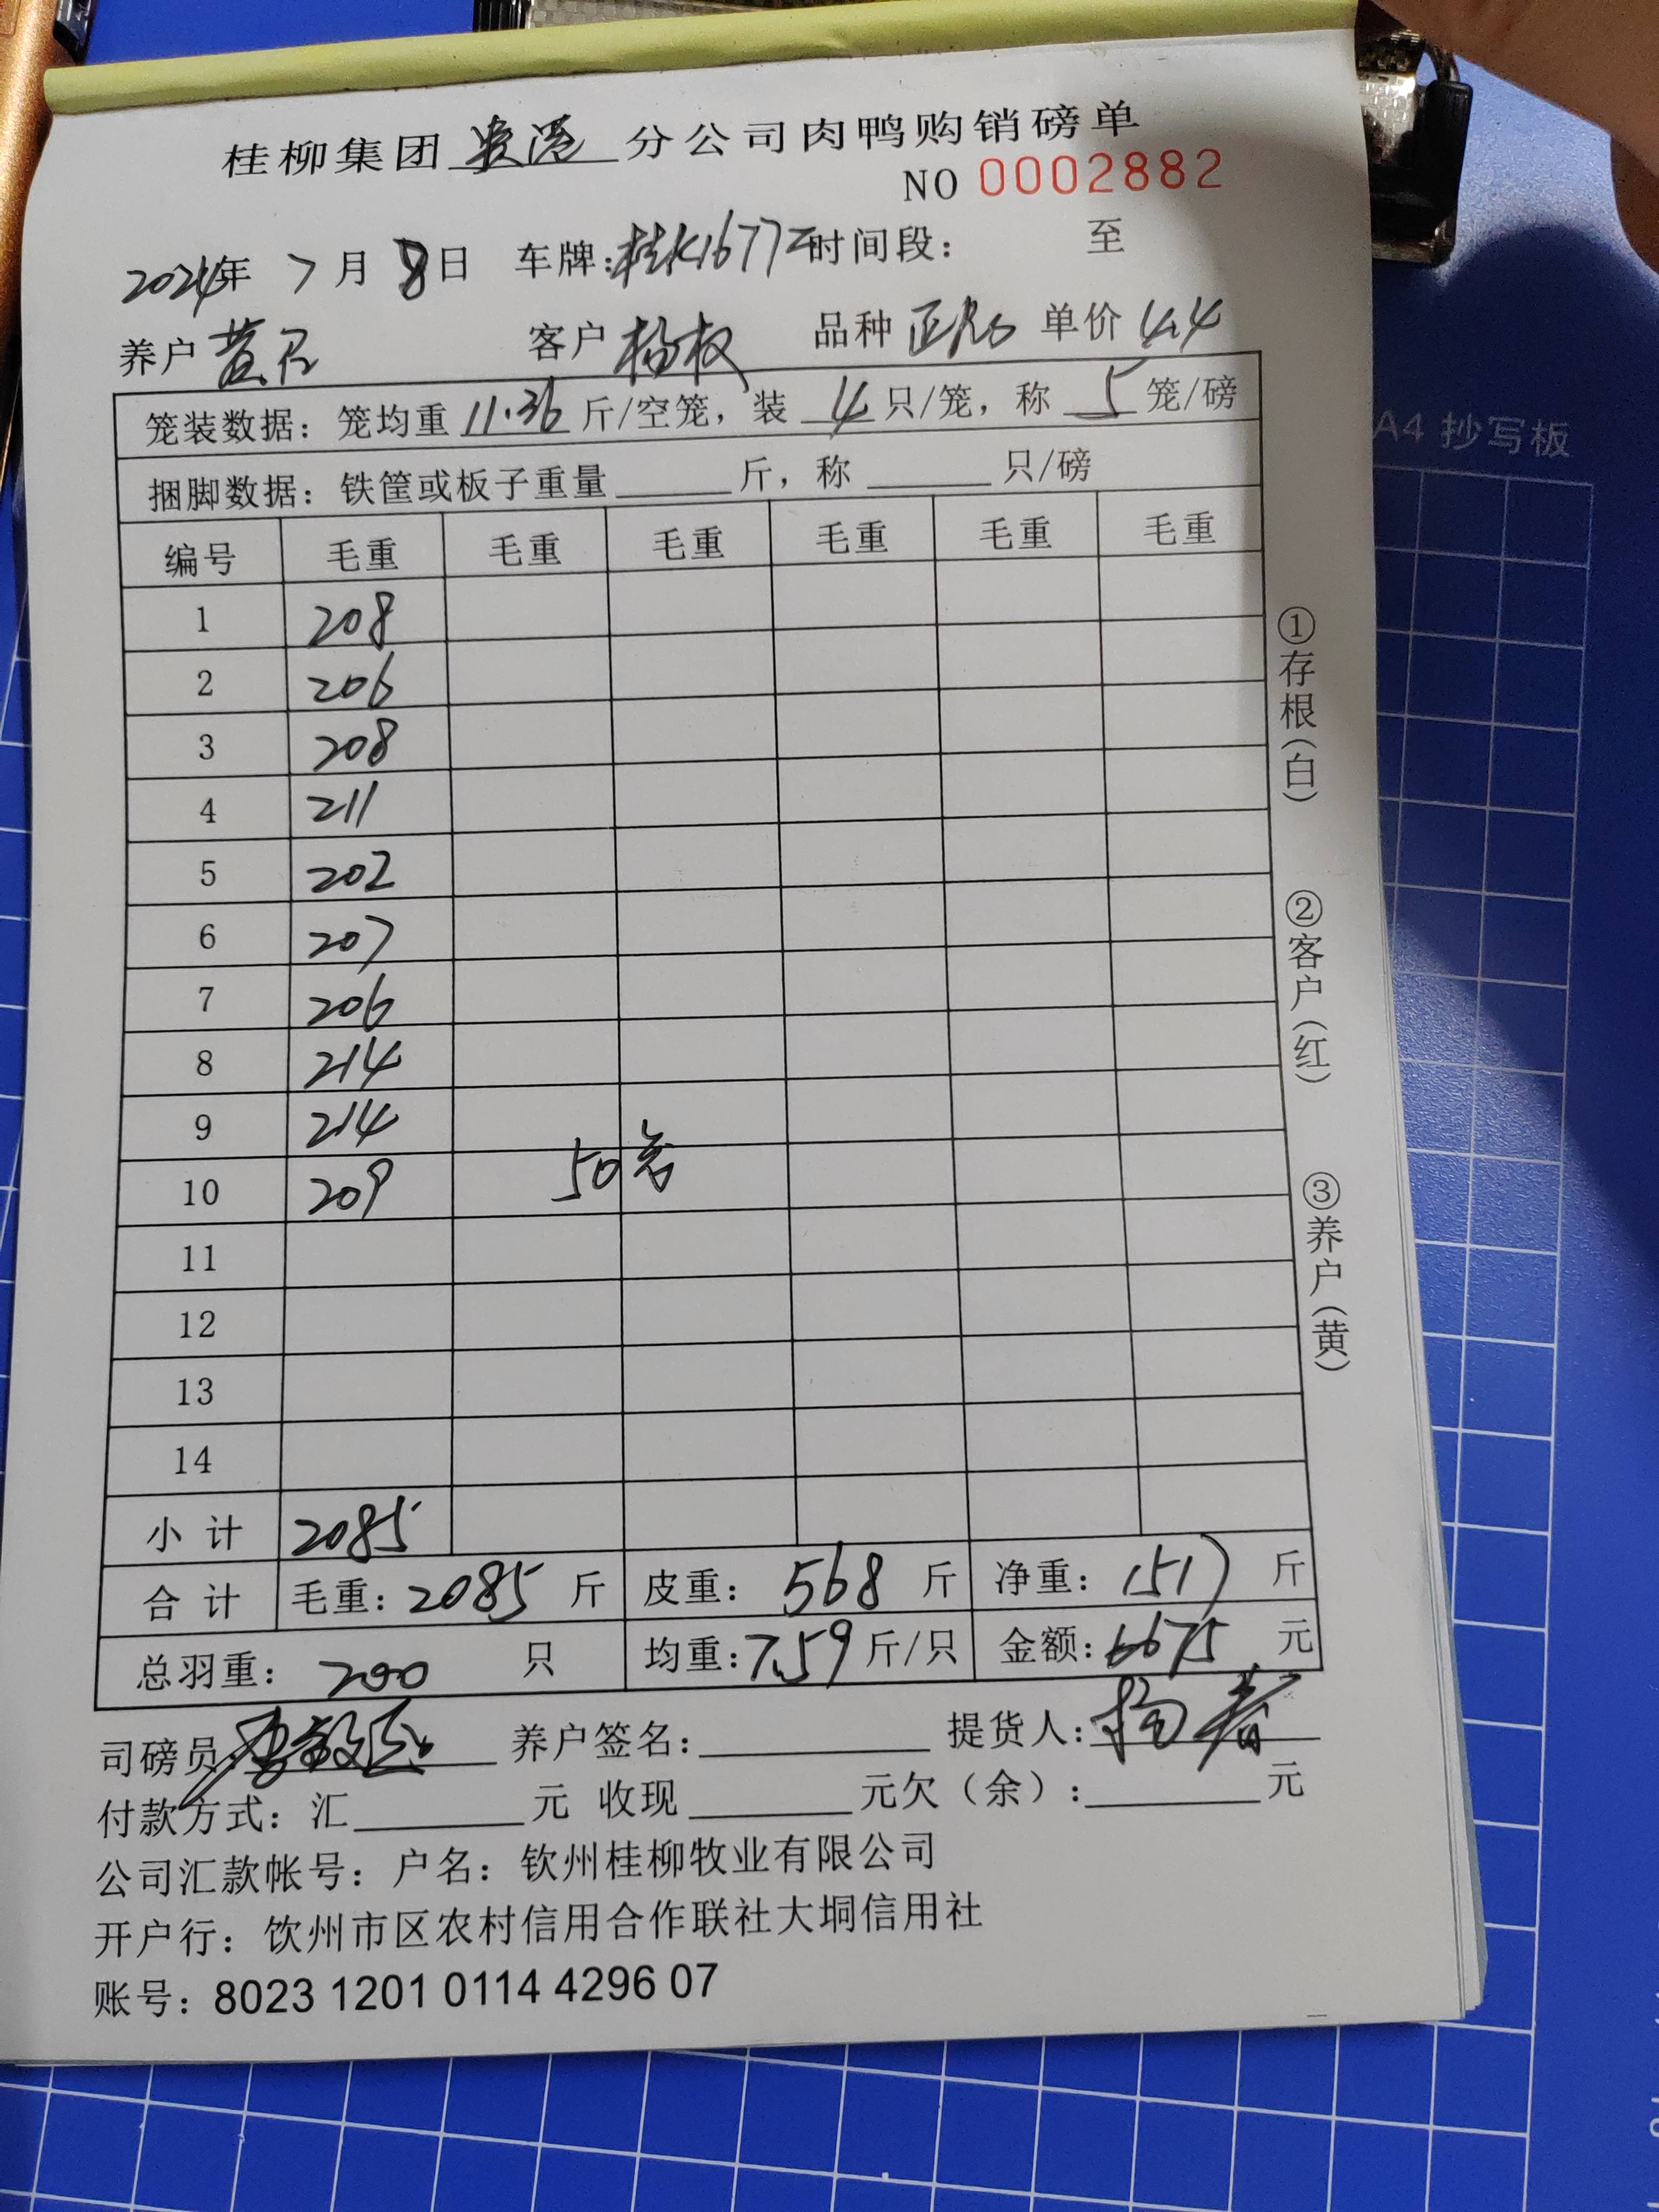 桂柳集团 贵港 分公司肉鸭购销磅单
NO 0002882
2024年 7月 8日 车牌:桂K1677Z 时间段: 至
养户 黄 客户 杨权 品种 正 单价 4.4
笼装数据:笼均重 11.36 斤/空笼,装 4 只/笼,称 5 笼/磅
捆脚数据:铁筐或板子重量 斤,称 只/磅
编号 毛重 毛重 毛重 毛重 毛重 毛重
1 208
2 206
3 208
4 211
5 202
6 207
7 206
8 214
9 214
10 209 50
11
12
13
14
小 计 2085
合 计 毛重:2085 斤 皮重:568 斤 净重:1517 斤
总羽重:200 只 均重:7.59 斤/只 金额:6675 元
司磅员: 养户签名: 提货人:杨春
付款方式:汇 元 收现 元欠(余): 元
公司汇款帐号:户名:钦州桂柳牧业有限公司
开户行:饮州市区农村信用合作联社大垌信用社
账号:8023 1201 0114 4296 07
①存根(白)
②客户(红)
③养户(黄)
A4 抄写板